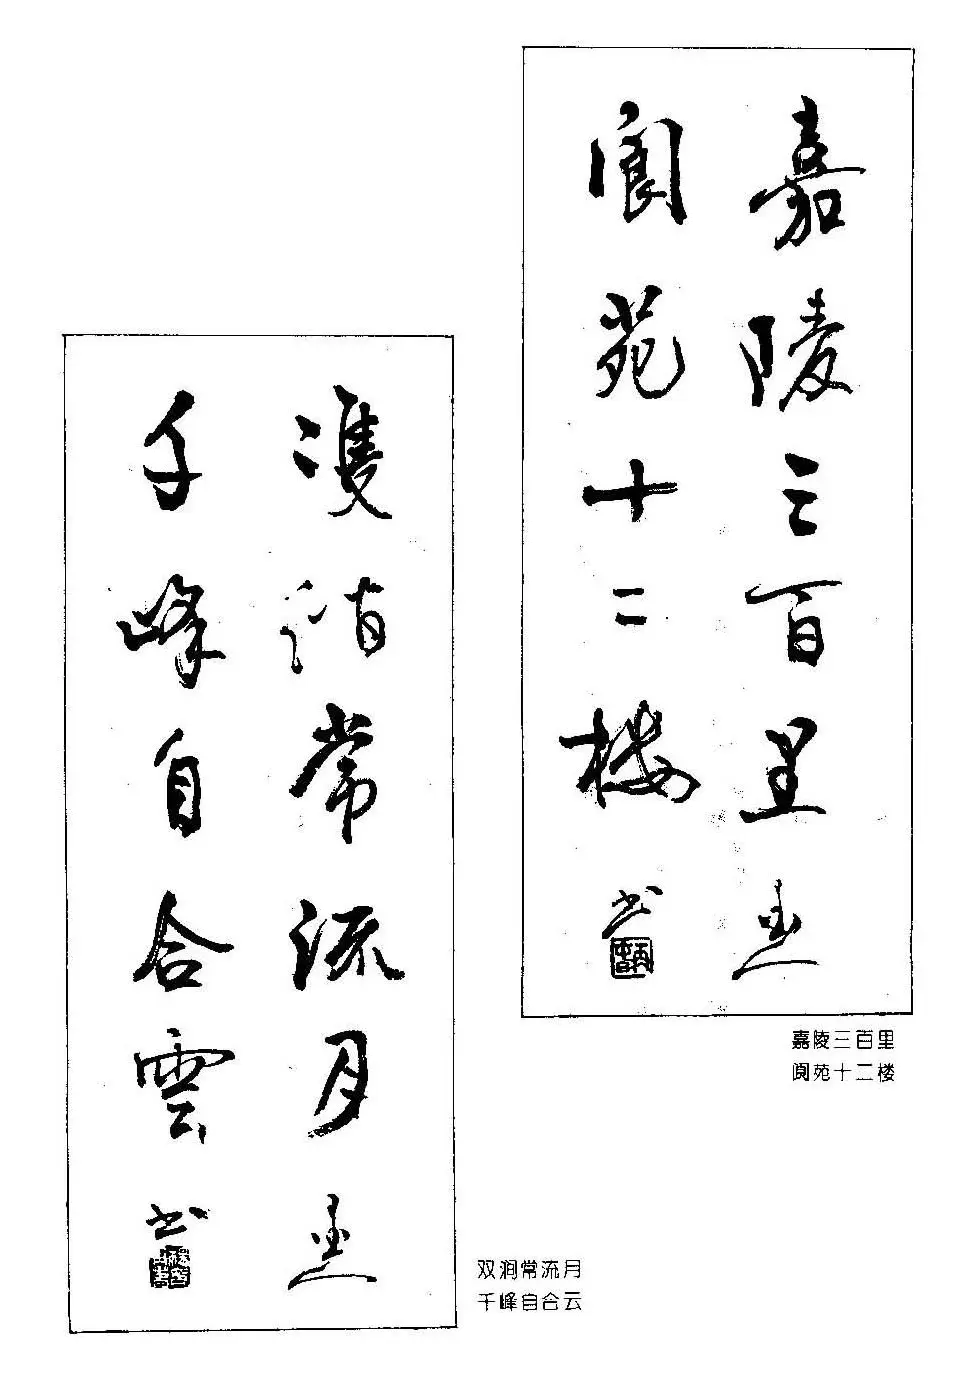 嘉陵三百里
阆苑十二楼
书
嘉陵三百里
阆苑十二楼
雙涧常流月
千峰自合雲
书
双涧常流月
千峰自合云